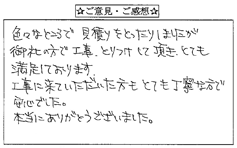 ☆ご意見・ご感想☆
色々なところで見積りをとったりしましたが
御社の方で工事、とりつけして頂き、とても
満足しております。
工事に来ていただいた方もとても丁寧な方で
安心でした。
本当にありがとうございました。